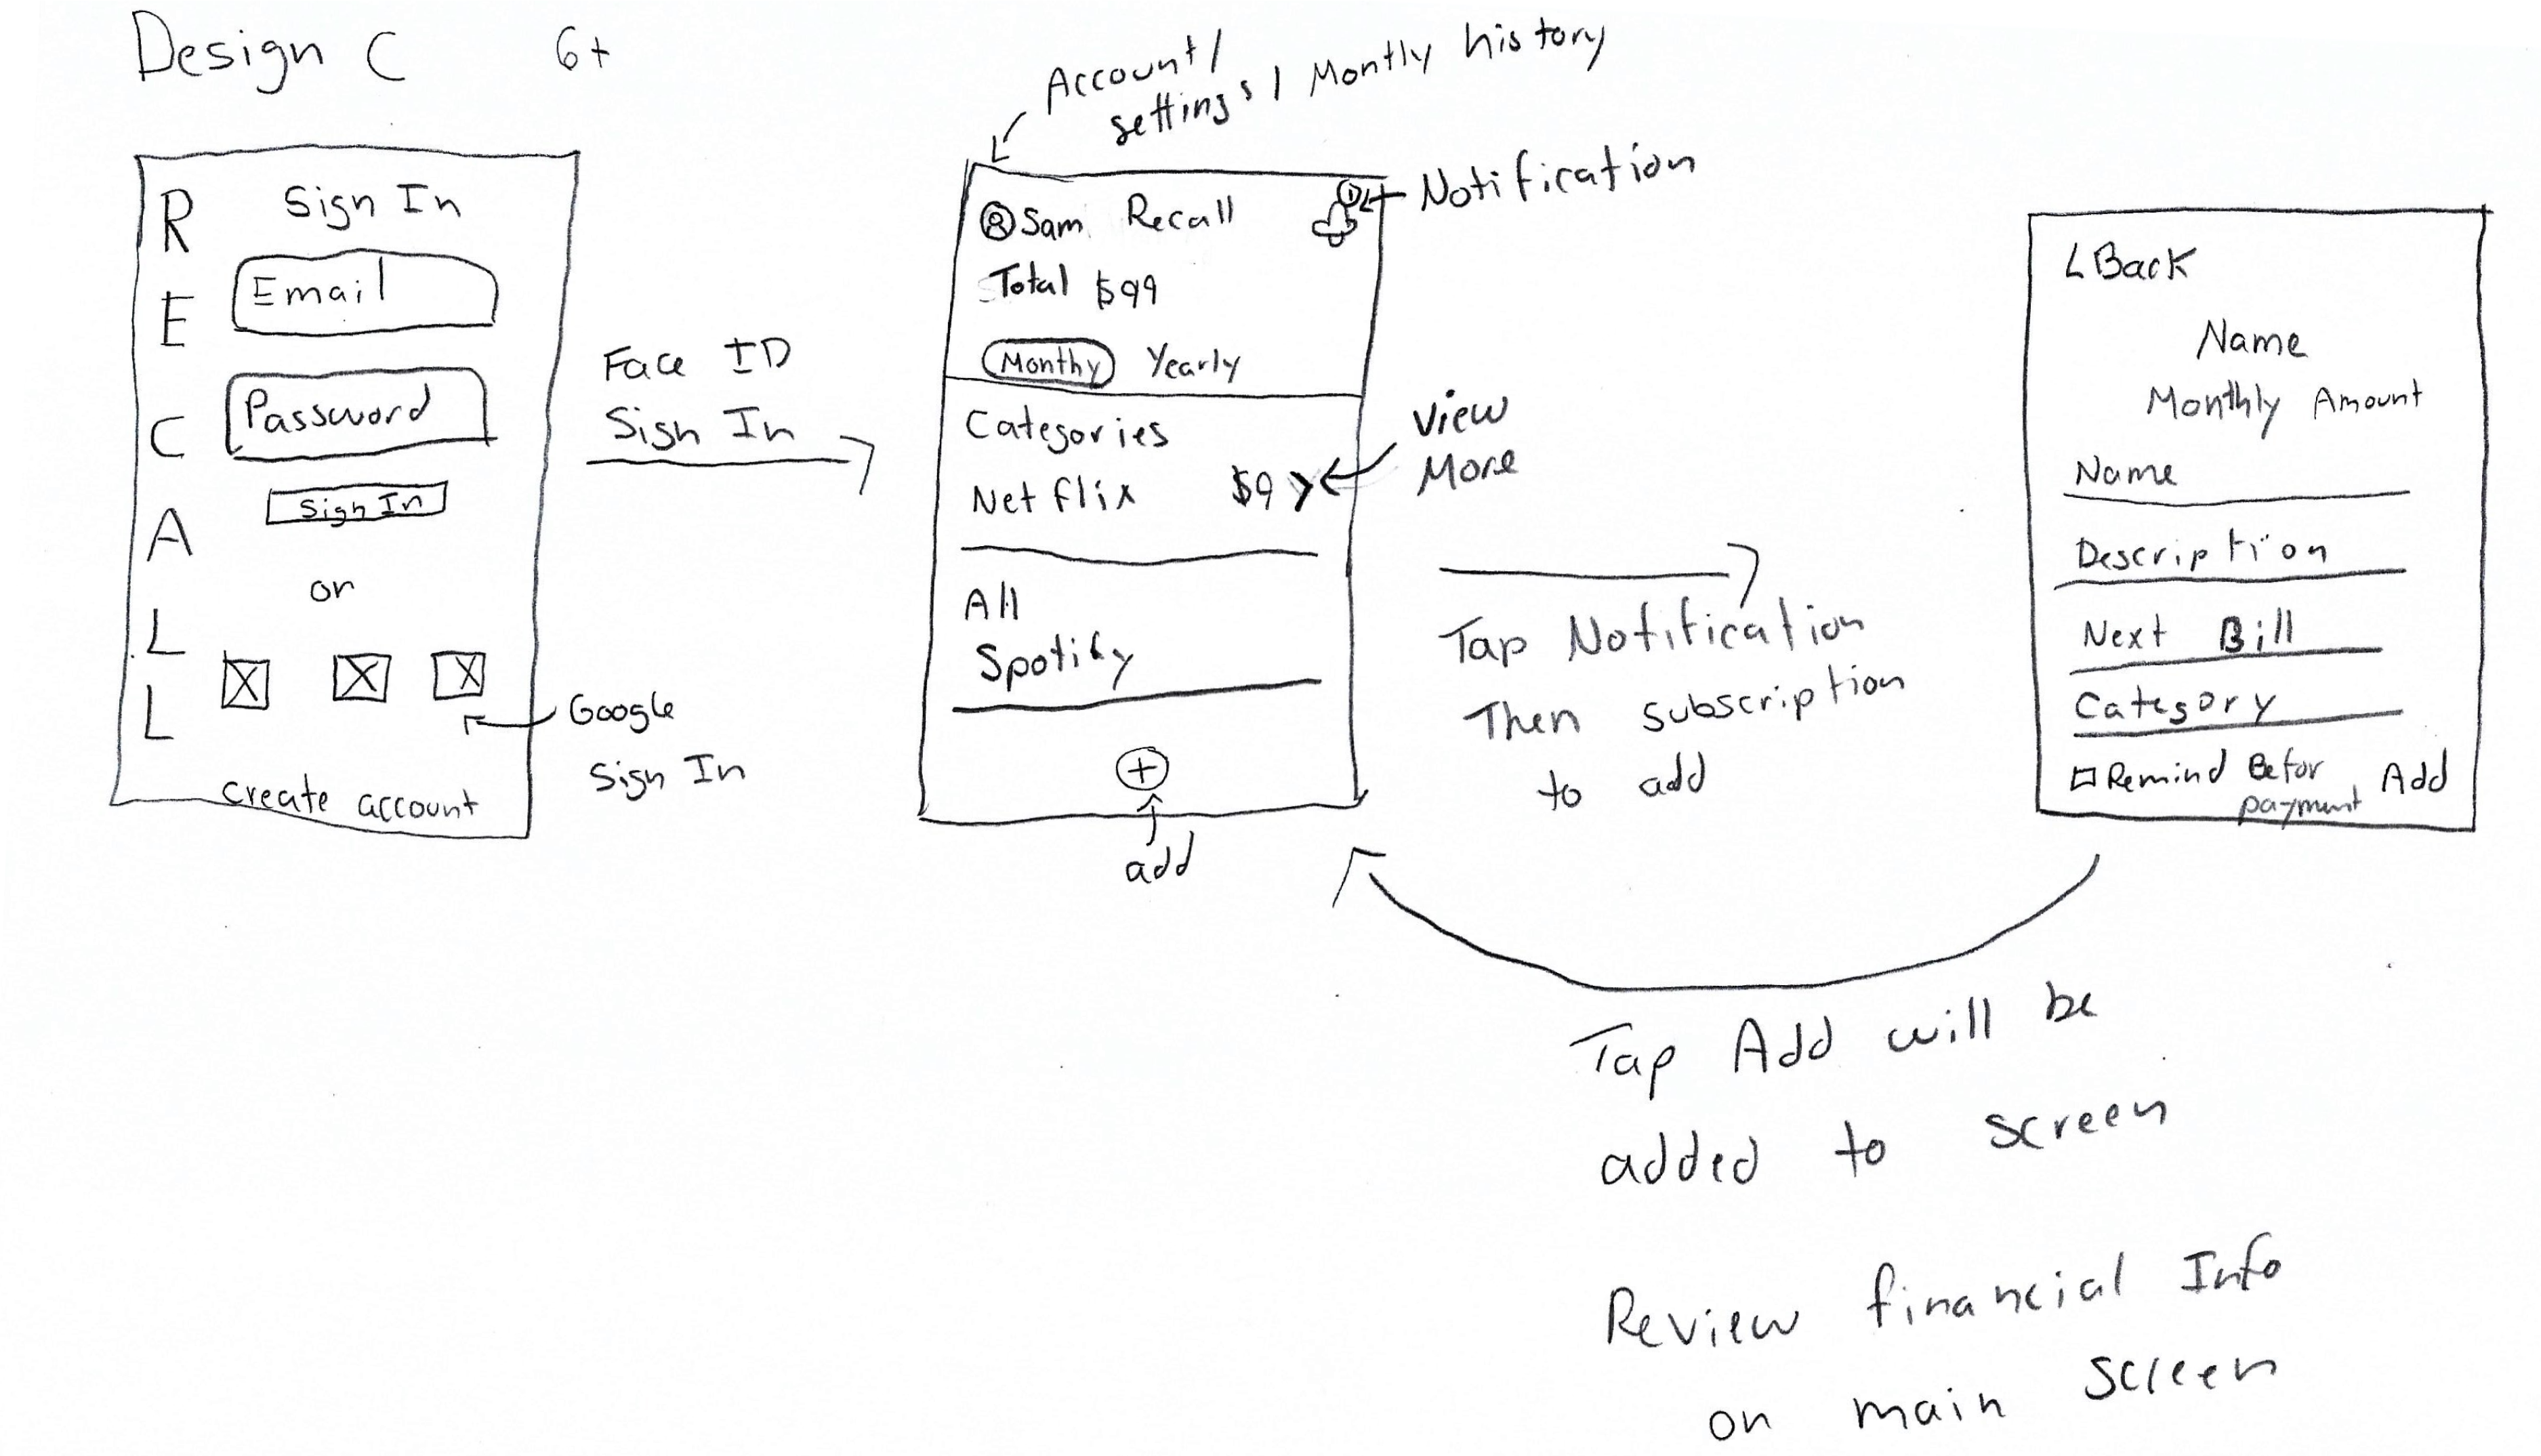 Design C 6+
RECALL
Sign In
Email
Password
Sign In
or
Google
Sign In
create account
Face ID
Sign In
Account/
settings / Montly history
Notification
Sam Recall
1
Total $99
Monthy Yearly
Categories
Netflix $9 >
View
More
All
Spotify
+
add
Tap Notification
Then subscription
to add
< Back
Name
Monthly Amount
Name
Description
Next Bill
Category
Remind Befor
payment
Add
Tap Add will be
added to screen
Review financial Info
on main screen